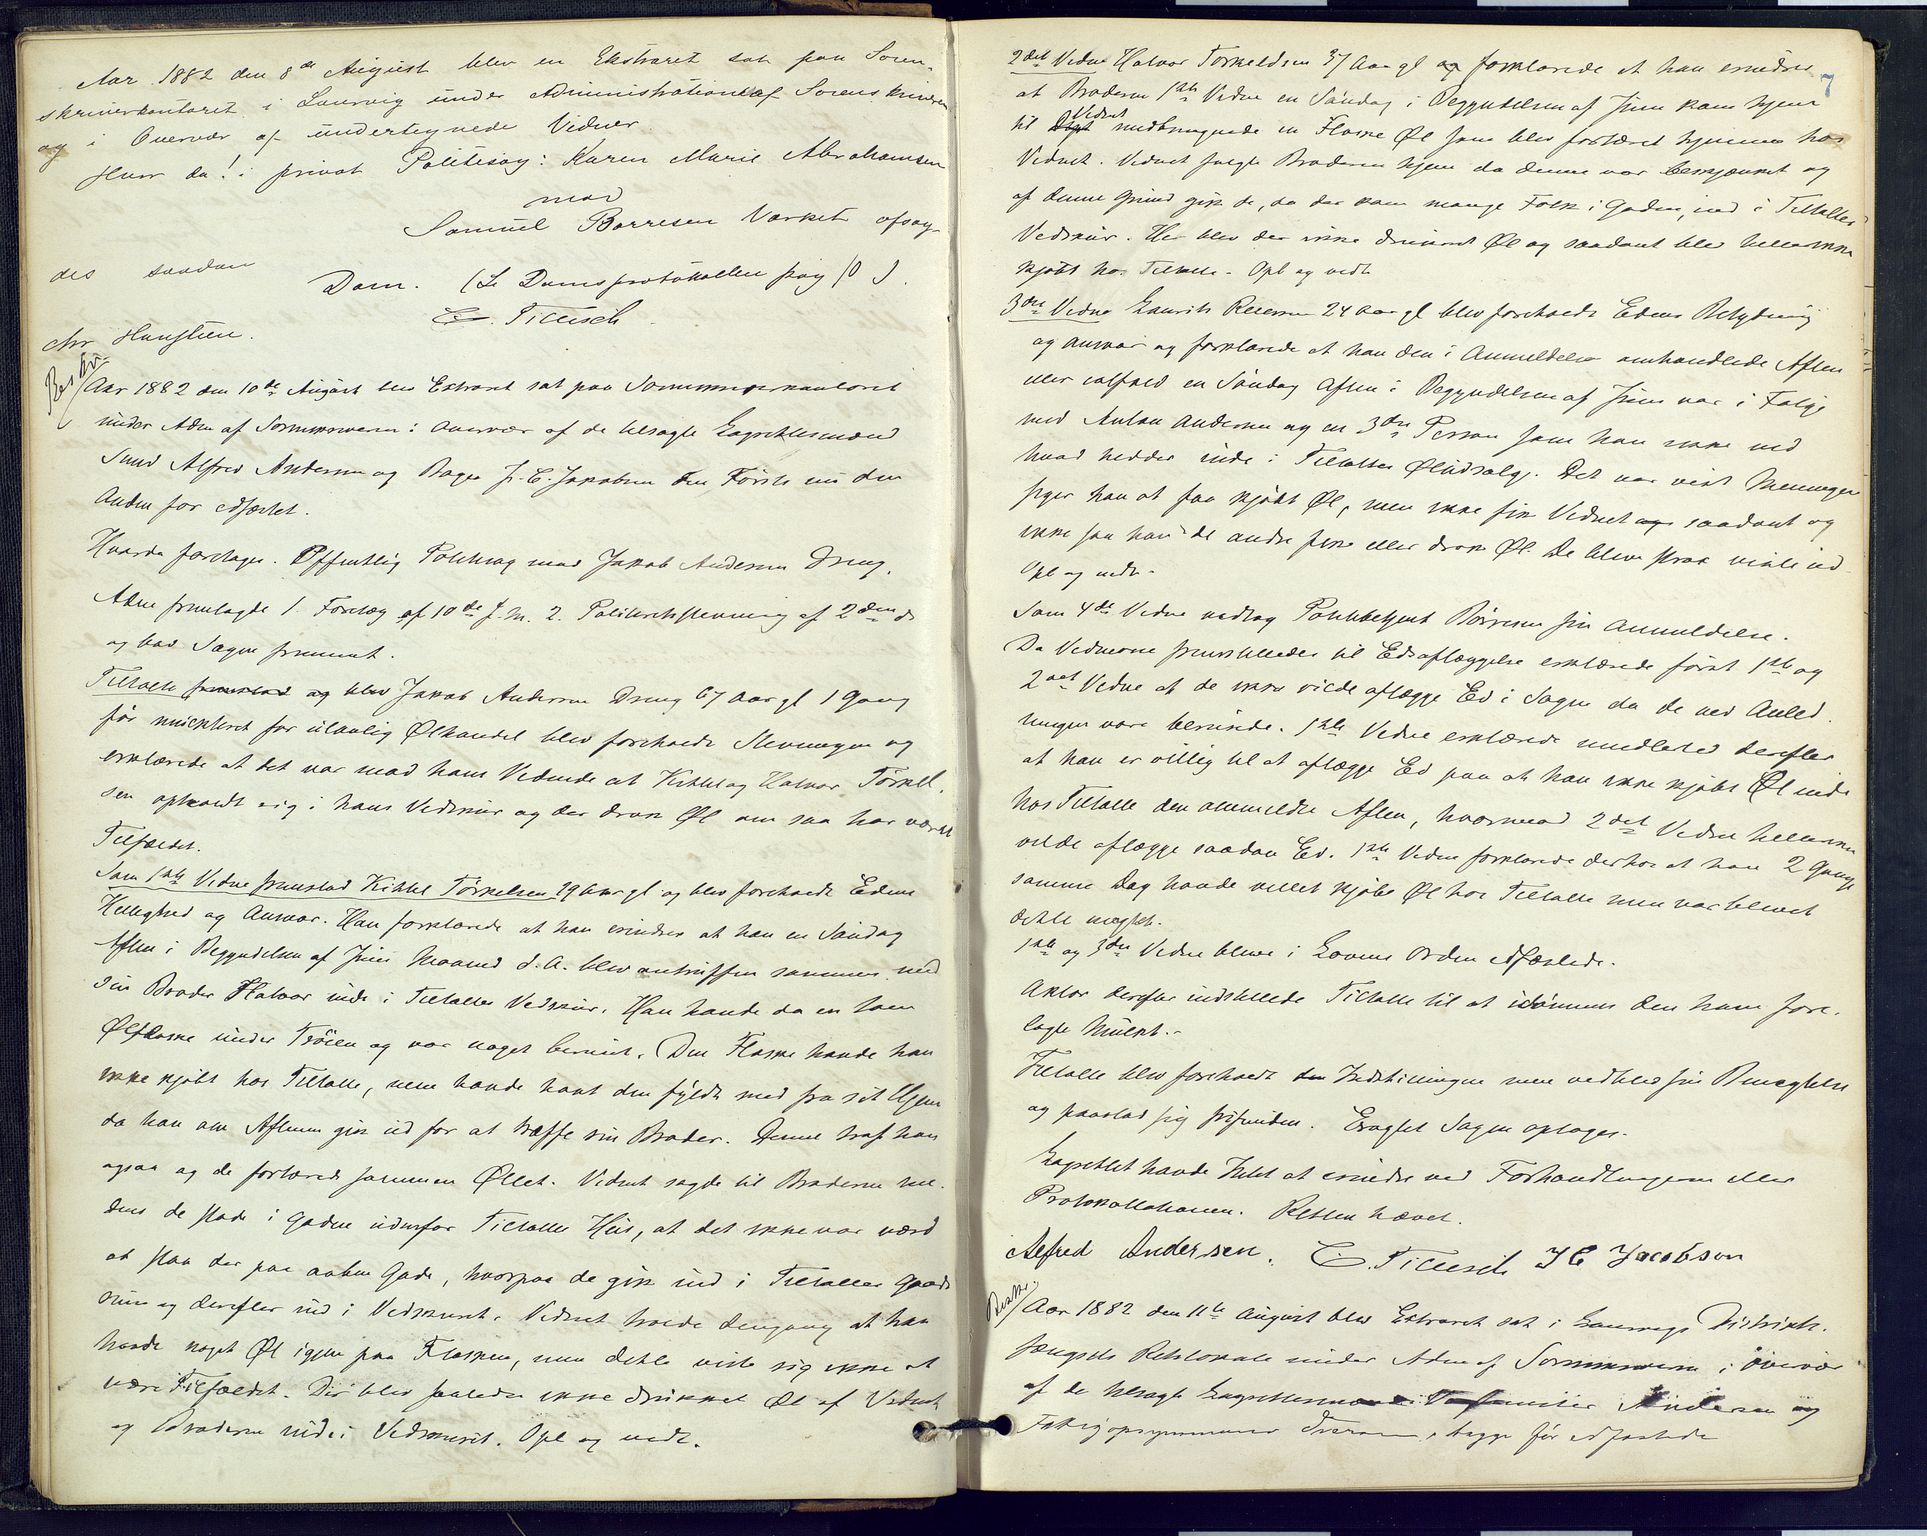 Aar 1882 den 8de August blev en Ekstraret sat paa Soren-
skriverkontoret i Laurvig under Administration af Sorenskriveren
og i Overvær af undertegnede Vidner
Hvor da! i privat Politisag: Karen Marie Abrahamsen
mod
Samuel Borresen Varket afsag-
des saadan
Dom. (Se Domsprotokollen pag 10).
C. Tillisch
Chr Hanssen.
Aar 1882 den 10de August blev Extraret sat paa Sorenskriverkontoret
under Adm af Sorenskriveren i Overvær af de tilsagte Lagrettesmænd
Smed Alfred Andersen og Bager J. C. Jakobsen den Første nu den
Anden før edfæstet.
Hvorda foretages. Offentlig Politisag mod Jakob Andersen Dreng.
Aktor fremlagde 1. Forelæg af 10de f. M. 2. Politiretsstevning af 2den ds
og bad Sagen fremmet.
Tiltalte fremstod og blev Jakob Andersen Dreng 67 Aar gl 1 Gang
før mulkteret for ulovlig Ølhandel blev foreholdt Stevningen og
erklærede at det var mod hans Vidende at Kittel og Halvor Torkel-
sen opholdt sig i hans Vedskur og der drak Øl om saa har været
Tilfældet.
Som 1ste Vidne fremstod Kittel Torkelsen 29 Aar gl og blev foreholdt Edens
Hellighed og Ansvar. Han forklarede at han erindrer at han en Søndag
Aften i Begyndelsen af Juni Maaned d. A. blev antruffen sammen med
sin Broder Halvor inde i Tiltaltes Vedskur. Han havde da en tom
Ølflaske under Trøien og var noget beruset. Den Flaske havde han
ikke kjøbt hos Tiltalte, men havde havt den fyldt med fra sit Hjem
da han om Aftenen gik ud for at træffe sin Broder. Denne traf han
ogsaa og de fortærede sammen Øllet. Vidnet sagde til Broderen me-
dens de stode i Gaden udenfor Tiltaltes Hus, at det ikke var værd
at staa der paa aaben Gade, hvorpaa de gik ind i Tiltaltes Gaards
rum og derefter ind i Vedskuret. Vidnet troede dengang at han
havde noget Øl igjen paa Flasken, men dette viste sig ikke at
være Tilfældet. Der blev saaledes ikke drukket Øl af Vidnet
og Broderen inde i Vedskuret. Opl og vedt.
7
2det Vidne Halvor Torkeldsen 37 Aar gl og forklarede at han erindrer
at Broderen 1ste Vidne en Søndag i Begyndelsen af Juni kom hjem
til Vidnet medbringende en Flaske Øl som blev fortæret hjemme hos
Vidnet. Vidnet fulgte Broderen hjem da denne var beskjænket og
af denne Grund gik de, da der kom mange Folk i Gaden, ind i Tiltaltes
Vedskur. Her blev der ikke drukket Øl og saadant blev heller ikke
kjøbt hos Tiltalte. Opl og vedt
3die Vidne Laurits Reiersen 24 Aar gl blev foreholdt Edens Betydning
og Ansvar og forklarede at han den i Anmeldelsen omhandlede Aften
eller ialfald en Søndag Aften i Begyndelsen af Juni var i Følge
med Anton Andersen og en 3die Person som han ikke ved
hvad hedder inde i Tiltaltes Øludsalg. Det var vist Meningen
siger han at faa kjøbt Øl, men ikke fik Vidnet saadant og
ikke saa han de andre fik eller drak Øl. De bleve strax viste ud
Opl og vedt.
Som 4de Vidne vedtog Politibetjent Børresen sin Anmeldelse.
Da Vidnerne fremstilledes til Edsaflæggelse erklærede først 1ste og
2det Vidne at de ikke vilde aflægge Ed i Sagen da de ved Anled-
ningen vare berusede. 1ste Vidne erklærede imidlertid derefter
at han er villig til at aflægge Ed paa at han ikke kjøbte Øl inde
hos Tiltalte den anmeldte Aften, hvorimod 2det Vidne heller ikke
vilde aflægge saadan Ed. 1ste Vidne forklarede derhos at han 2 Gange
samme Dag havde villet kjøbe Øl hos Tiltalte men var blevet
dette nægtet.
1ste og 3die Vidne bleve i Lovens Orden edfæstede.
Aktor derefter indstillede Tiltalte til at idømmes den ham fore-
lagte Mulkt.
Tiltalte blev foreholdt Indstillingen men vedblev sin Benegtelse
og paastod sig frifunden. Eragtet Sagen optages.
Lagrettet havde Intet at erindre ved Forhandlingerne eller
Protokollationen. Retten hævet.
Alfred Andersen. C. Tillisch J C Jacobson
Aar 1882 den 11te August blev Extraret sat i Laurvigs Distrikts-
fængsels Retslokale under Adm af Sorenskriveren i Overvær
af de tilsagte Lagrettesmænd Andersen og
begge før edfæstede